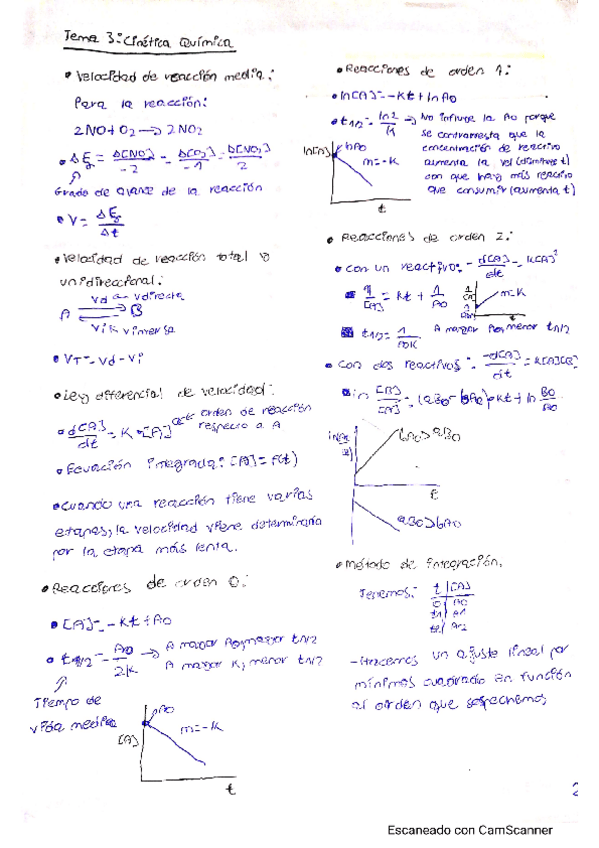 Tema 3: Cinética Química
• Velocidad de reacción media:
Para la reacción:
2NO + O2 → 2NO2
• Δξ = Δ[NO]/-2 = Δ[O2]/-1 = Δ[NO2]/2
Grado de avance de la reacción
• V = Δξ/Δt
• Velocidad de reacción total o
unidireccional:
Vd ← Vdirecta
A ⇌ B
Vi ← Vinversa
• VT = Vd - Vi
• Ley diferencial de velocidad:
• d[A]/dt = K·[A]^α ← orden de reacción
respecto a A
• Ecuación integrada: [A] = f(t)
• Cuando una reacción tiene varias
etapas, la velocidad viene determinada
por la etapa más lenta.
• Reacciones de orden 0:
• [A] = -Kt + A0
• t1/2 = A0/2K → A mayor A0, mayor t1/2
A mayor K, menor t1/2
Tiempo de
vida media
A0
[A]
m = -K
t
• Reacciones de orden 1:
• ln[A] = -Kt + lnA0
• t1/2 = ln2/K → No influye la A0 porque
se contrarresta que la
concentración de reactivo
aumenta la vel (disminuye t)
con que hay más reactivo
que consumir (aumenta t)
ln[A]
m = -K
t
• Reacciones de orden 2:
• Con un reactivo: -d[A]/dt = K[A]²
1/[A] = Kt + 1/A0
1/[A]
m = K
t1/2 = 1/A0K
A mayor A0, menor t1/2
• Con dos reactivos: -d[A]/dt = K[A][B]
• ln [B]/[A] = (aB0 - bA0)·Kt + ln B0/A0
bA0 > aB0
t
aB0 > bA0
• Método de integración.
Tenemos:
t | [A]
0 | A0
t1 | A1
t2 | A2
- Hacemos un ajuste lineal por
mínimos cuadrado en función
al orden que sospechemos
2
Escaneado con CamScanner